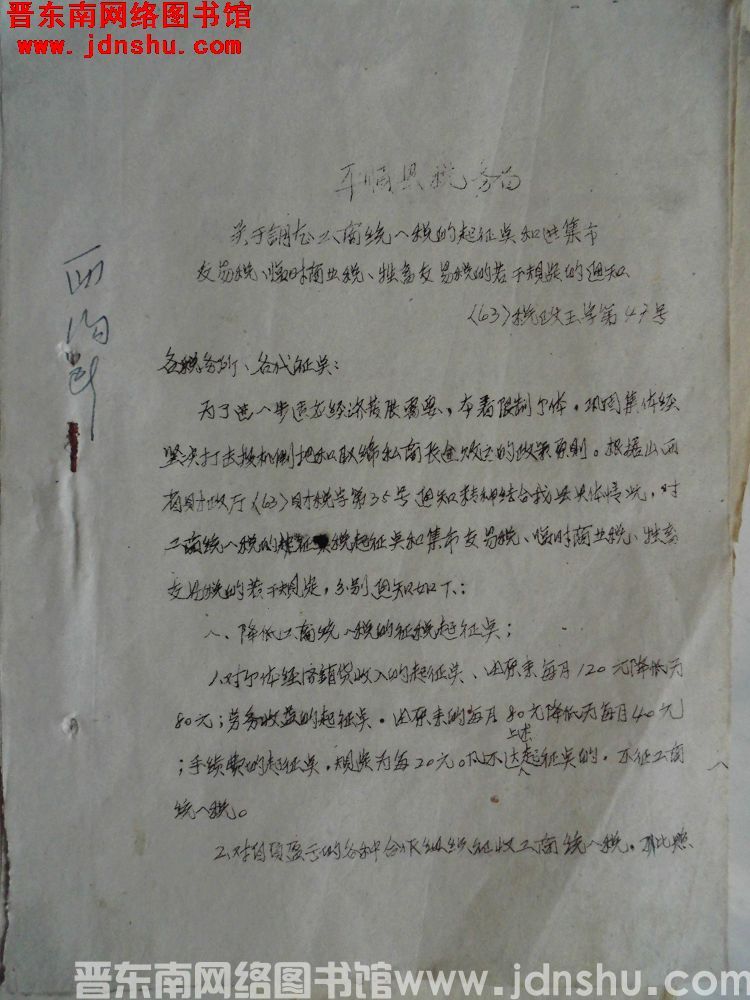 晋东南网络图书馆
www.jdnshu.com
平顺县税务局
关于调整工商统一税的起征点和对集市
交易税、临时商业税、牲畜交易税的若干规定的通知
(63)税政王字第47号
西沟
各税务所、各代征点:
为了进一步适应经济发展需要,本着限制个体,巩固集体经
坚决打击投机倒把和取缔私商长途贩运的政策原则。根据山西
省财政厅(63)财税字第35号通知精神结合我县具体情况,对
工商统一税的税起征点和集市交易税、临时商业税、牲畜
交易税的若干规定,分别通知如下:
一、降低工商统一税的征税起征点;
1.对个体经济销货收入的起征点、由原来每月120元降低为
80元;劳务收益的起征点.由原来的每月80元降低为每月40元
;手续费的起征点,规定为每20元。凡不达上述起征点的.不征工商
统一税。
2.对自负盈亏的各种合作组织征收工商统一税.比照
晋东南网络图书馆www.jdnshu.com